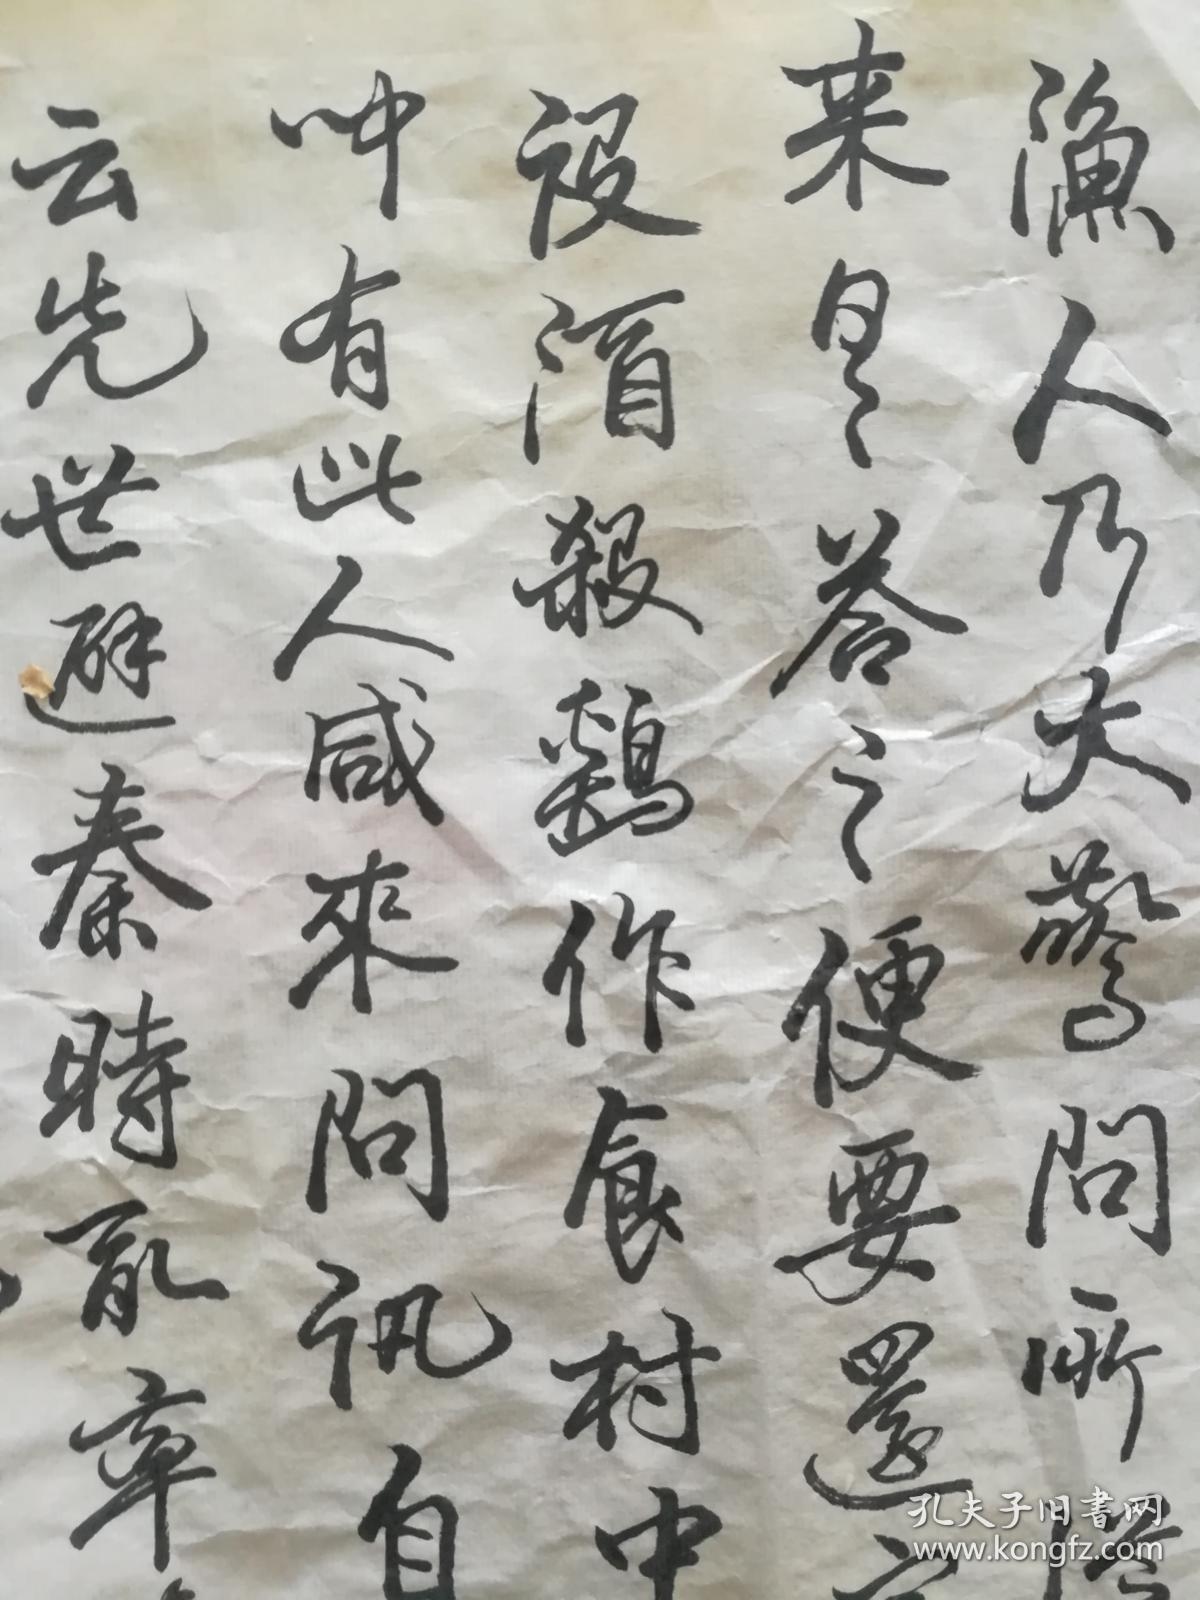 漁人乃大驚問所
来具荅之便要還
設酒殺鷄作食村中
聞有此人咸來問訊自
云先世避秦時亂率
孔夫子旧書网
www.kongfz.com